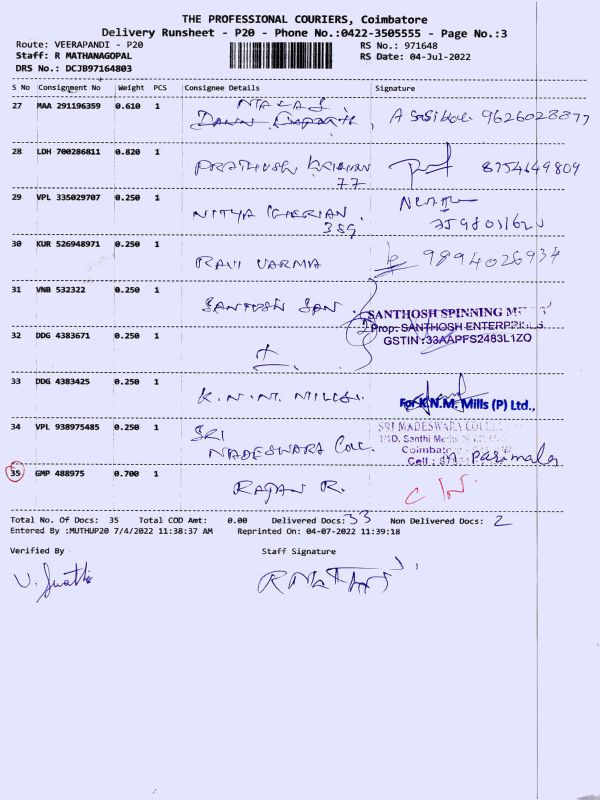 THE PROFESSIONAL COURIERS, Coimbatore
Delivery Runsheet - P20 - Phone No.:0422-3505555 - Page No.:3
Route: VEERAPANDI - P20
Staff: R MATHANAGOPAL
DRS No.: DCJB97164803
RS No.: 971648
RS Date: 04-Jul-2022
S No Consignment No Weight PCS Consignee Details Signature
27 MAA 291196359 0.610 1 9626028877
28 LDH 700286811 0.820 1 8754649809
77
29 VPL 335029707 0.250 1 NITYA
389
30 KUR 526948971 0.250 1 RAVI VARMA 9894026934
31 VNB 532322 0.250 1 SANTOSH SAN SANTHOSH SPINNING
Prop: SANTHOSH ENTERPRISES
GSTIN:33AAPFS2483L1ZO
32 DDG 4383671 0.250 1
33 DDG 4383425 0.250 1 K.N.M. MILLS. For K.N.M. Mills (P) Ltd.,
34 VPL 938975485 0.250 1 SRI
SRI MADESWARA
Santhi
Coimbatore
Cell :
35 GMP 488975 0.700 1 RAJAN R.
Total No. Of Docs: 35 Total COD Amt: 0.00 Delivered Docs: 33 Non Delivered Docs: 2
Entered By :MUTHUP20 7/4/2022 11:38:37 AM Reprinted On: 04-07-2022 11:39:18
Verified By Staff Signature